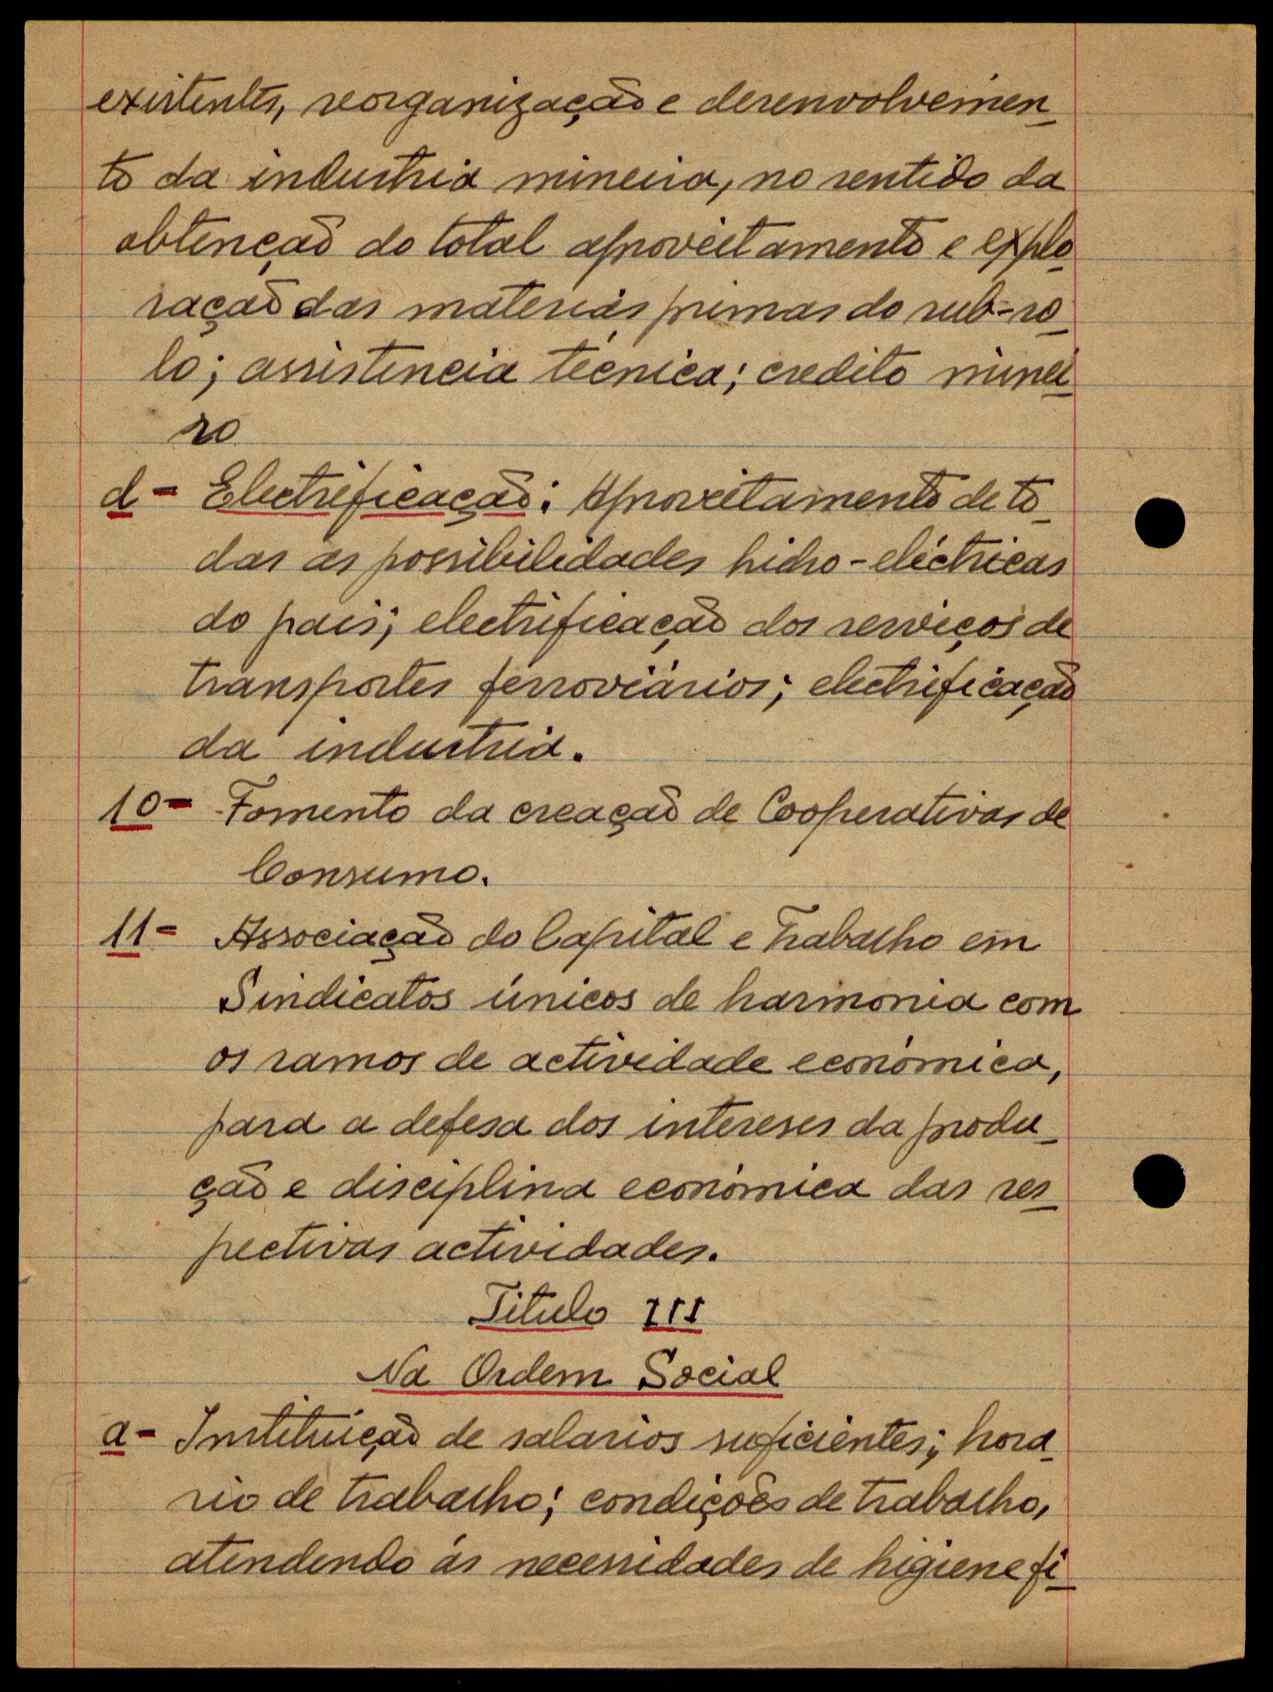 existentes, reorganização e desenvolvimen_
to da industria mineira, no sentido da
obtenção do total aproveitamento e explo_
ração das materiás primas do sub-so_
lo; assistencia técnica; credito minei_
ro
d - Electrificação: Aproveitamento de to_
das as possibilidades hidro-eléctricas
do pais; electrificação dos serviços de
transportes ferroviários; electrificação
da industria.
10 - Fomento da creação de Cooperativas de
Consumo.
11 - Associação do Capital e Trabalho em
Sindicatos únicos de harmonia com
os ramos de actividade económica,
para a defesa dos intereses da produ_
ção e disciplina económica das res_
pectivas actividades.
Titulo III
Na Ordem Social
a - Instituição de salarios suficientes; hora_
rio de trabalho; condições de trabalho,
atendendo ás necessidades de higiene fi_